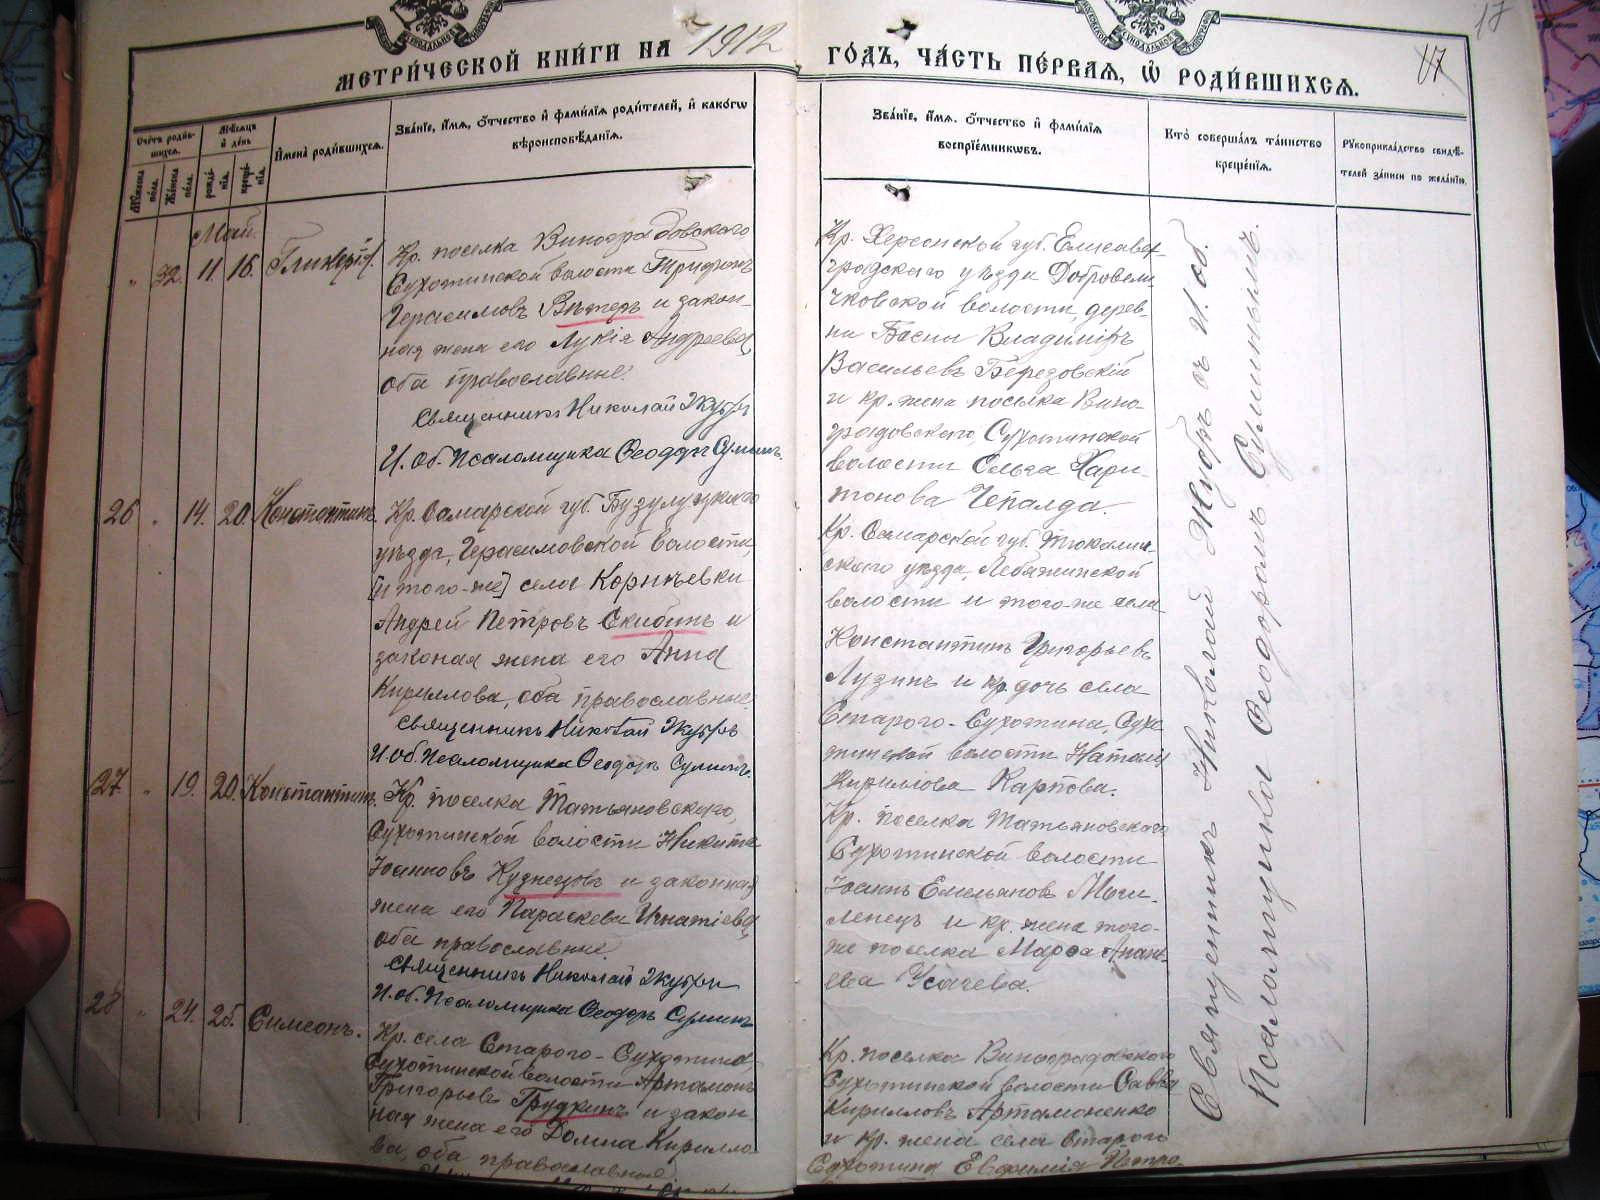 МЕТРИ́ЧЕСКОЙ КНИ́ГИ НА 1912 ГО́ДЪ, ЧА́СТЬ ПЕ́РВАЯ, Ѡ РОДИ́ВШИХСЯ.
17
17
Сче́тъ роди́в-
шихся.
Му́жеска по́ла.
Же́нска по́ла.
Мѣ́сяцъ и де́нь
рожде́-
нія.
креще́-
нія.
И́мена роди́вшихся.
Зва́ніе, и́мя, ѻ́тчество и фами́лія роди́телей, и како́гѡ
вѣроисповѣ́данія.
Зва́ніе, и́мя, ѻ́тчество и фами́лія
воспріе́мниковъ.
Кто́ соверша́лъ та́инство
креще́нія.
Рукоприкла́дство свидѣ́-
телей за́писи по жела́нію.
Май.
" 32. 11. 16. Гликерія.
Кр. поселка Виноградовского
Сухотинской волости Трифонъ
Герасимовъ Вѣтеръ и закон-
ная жена его Лукія Андреева,
оба православные.
Священникъ Николай
И. об. Псаломщика Ѳеодоръ Сулинъ.
Кр. Херсонской губ. Елисавет-
градскаго уѣзда Добровели-
чковской волости, дерев-
ни Владиміръ
Васильевъ Березовскій
и кр. жена поселка Вино-
градовскаго, Сухотинской
волости Ольга Хари-
тонова Чепалда.
26 " 14. 20. Константинъ.
Кр. Самарской губ. Бузулукскаго
уѣзда, Герасимовской волости,
[и того-же] села Корнѣевки
Андрей Петровъ Скибинъ и
законая жена его Анна
Кириллова, оба православные.
Священникъ Николай
И. об. Псаломщика Ѳеодоръ Сулинъ.
Кр. Самарской губ. Тюкалин-
скаго уѣзда, Лебяжинской
волости и того-же села
Константинъ Григорьевъ
Лузинъ и кр. дочь села
Старого-Сухотина, Сухо-
тинской волости Наталія
Кириллова Карпова.
27 " 19. 20. Константинъ.
Кр. поселка Татьяновскаго,
Сухотинской волости Никита
Іоанновъ Кузнецовъ и законная
жена его Параскева Игнатіева,
оба православные.
Священникъ Николай
И. об. Псаломщика Ѳеодоръ Сулинъ
Кр. поселка Татьяновскаго
Сухотинской волости
Іоаннъ Емельяновъ Моги-
ленецъ и кр. жена того-
же поселка Марѳа Анань-
ева Усачева.
28 " 24. 25. Симеонъ.
Кр. села Старого-Сухотина,
Сухотинской волости Артамонъ
Григорьевъ Грудкинъ и закон-
ная жена его Домна Кирилло-
ва, оба православные
Кр. поселка Виноградовскаго
Сухотинской волости Савва
Кирилловъ Артамоненко
и кр. жена села Старого
Сухотина Евфимія Петро-
Священникъ Николай съ И. об.
Псаломщика Ѳеодоромъ Сулинымъ.